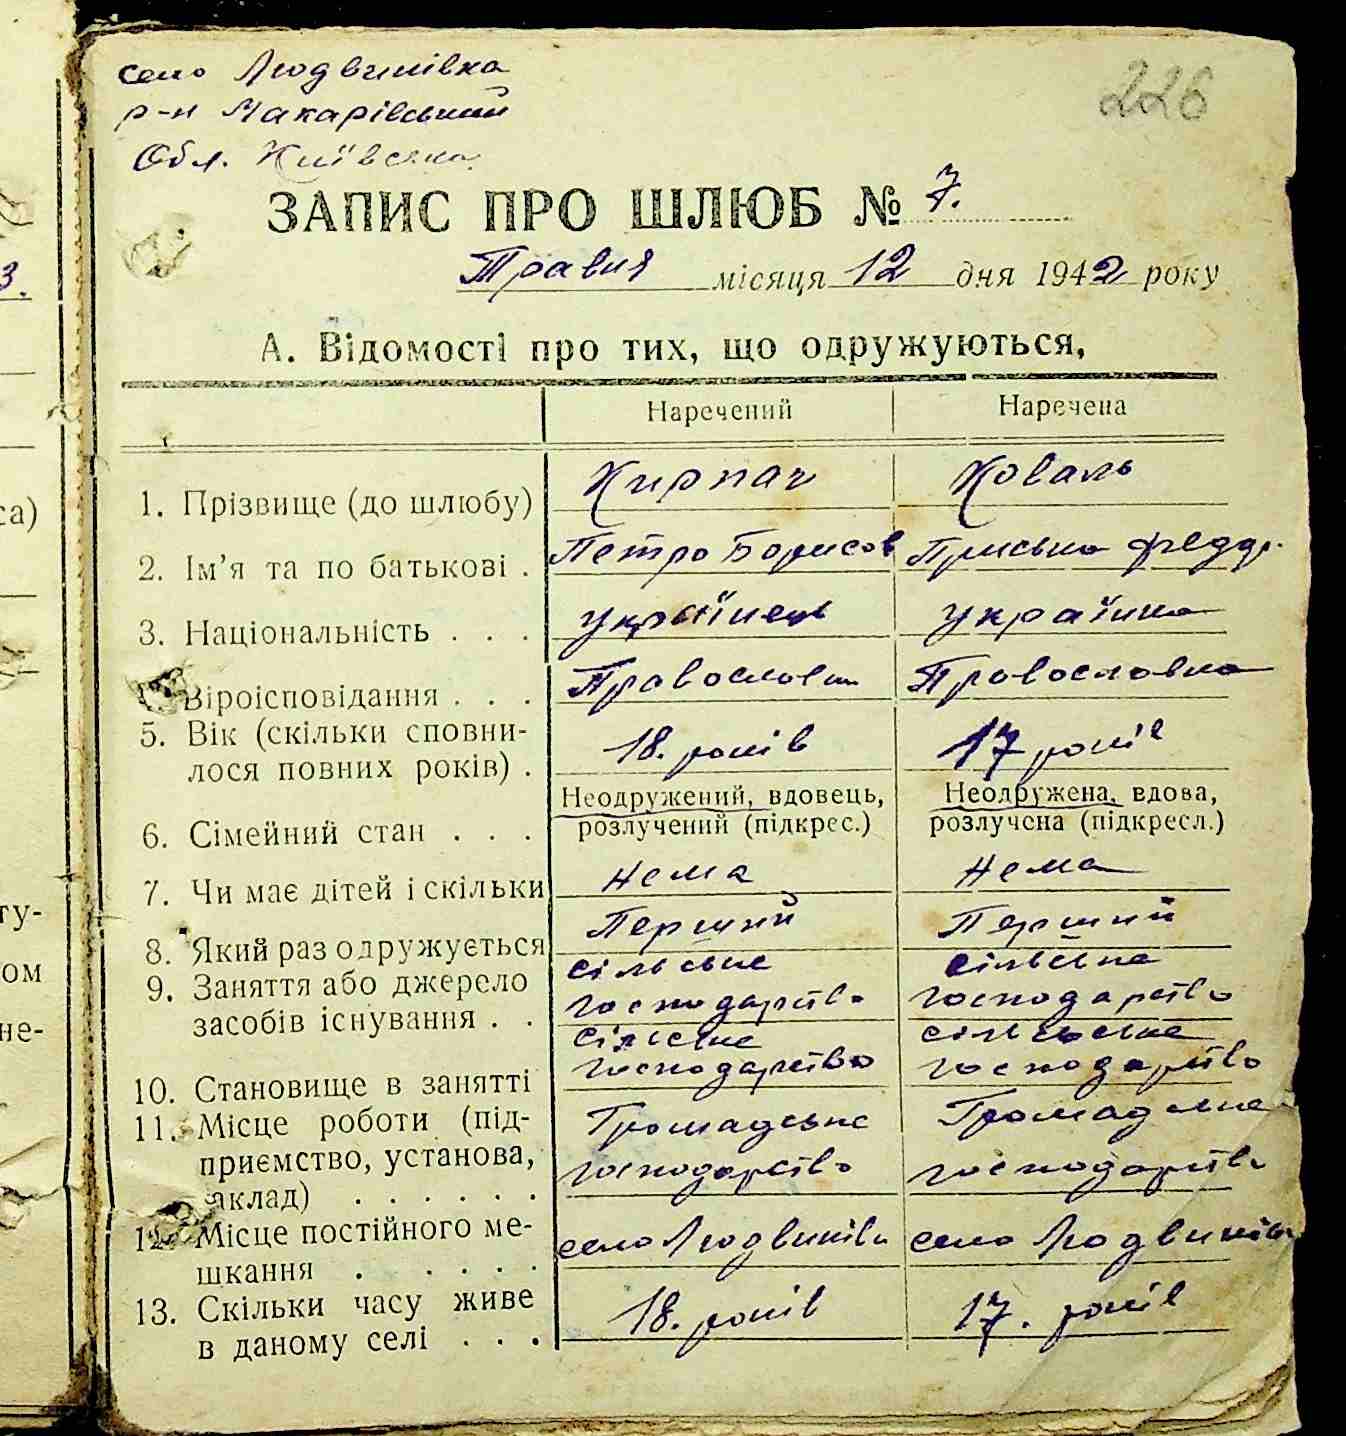 село Людвинівка
р-н Макарівський
Обл. Київська
226
ЗАПИС ПРО ШЛЮБ № 7.
Травня місяця 12 дня 1942 року
А. Відомості про тих, що одружуються,
Наречений Наречена
1. Прізвище (до шлюбу) Кирпач Коваль
2. Ім'я та по батькові . Петро Борисов Приська Федор.
3. Національність . . . українець українка
Віроісповідання . . . Православн Православна
5. Вік (скільки сповни-
лося повних років) . 18. років 17 років
Неодружений, вдовець, Неодружена, вдова,
6. Сімейний стан . . . розлучений (підкрес.) розлучена (підкресл.)
7. Чи має дітей і скільки нема нема
8. Який раз одружується Перший Перший
9. Заняття або джерело сільське сільське
засобів існування . . господарство господарство
сільське сільське
10. Становище в занятті господарство господарство
11. Місце роботи (під- Громадське Громадське
приємство, установа, господарство господарство
заклад) . . . . . .
12. Місце постійного ме- село Людвинівк село Людвинівк
шкання . . . . .
13. Скільки часу живе 18. років 17. років
в даному селі . . .
3.
са)
ту-
ом
не-